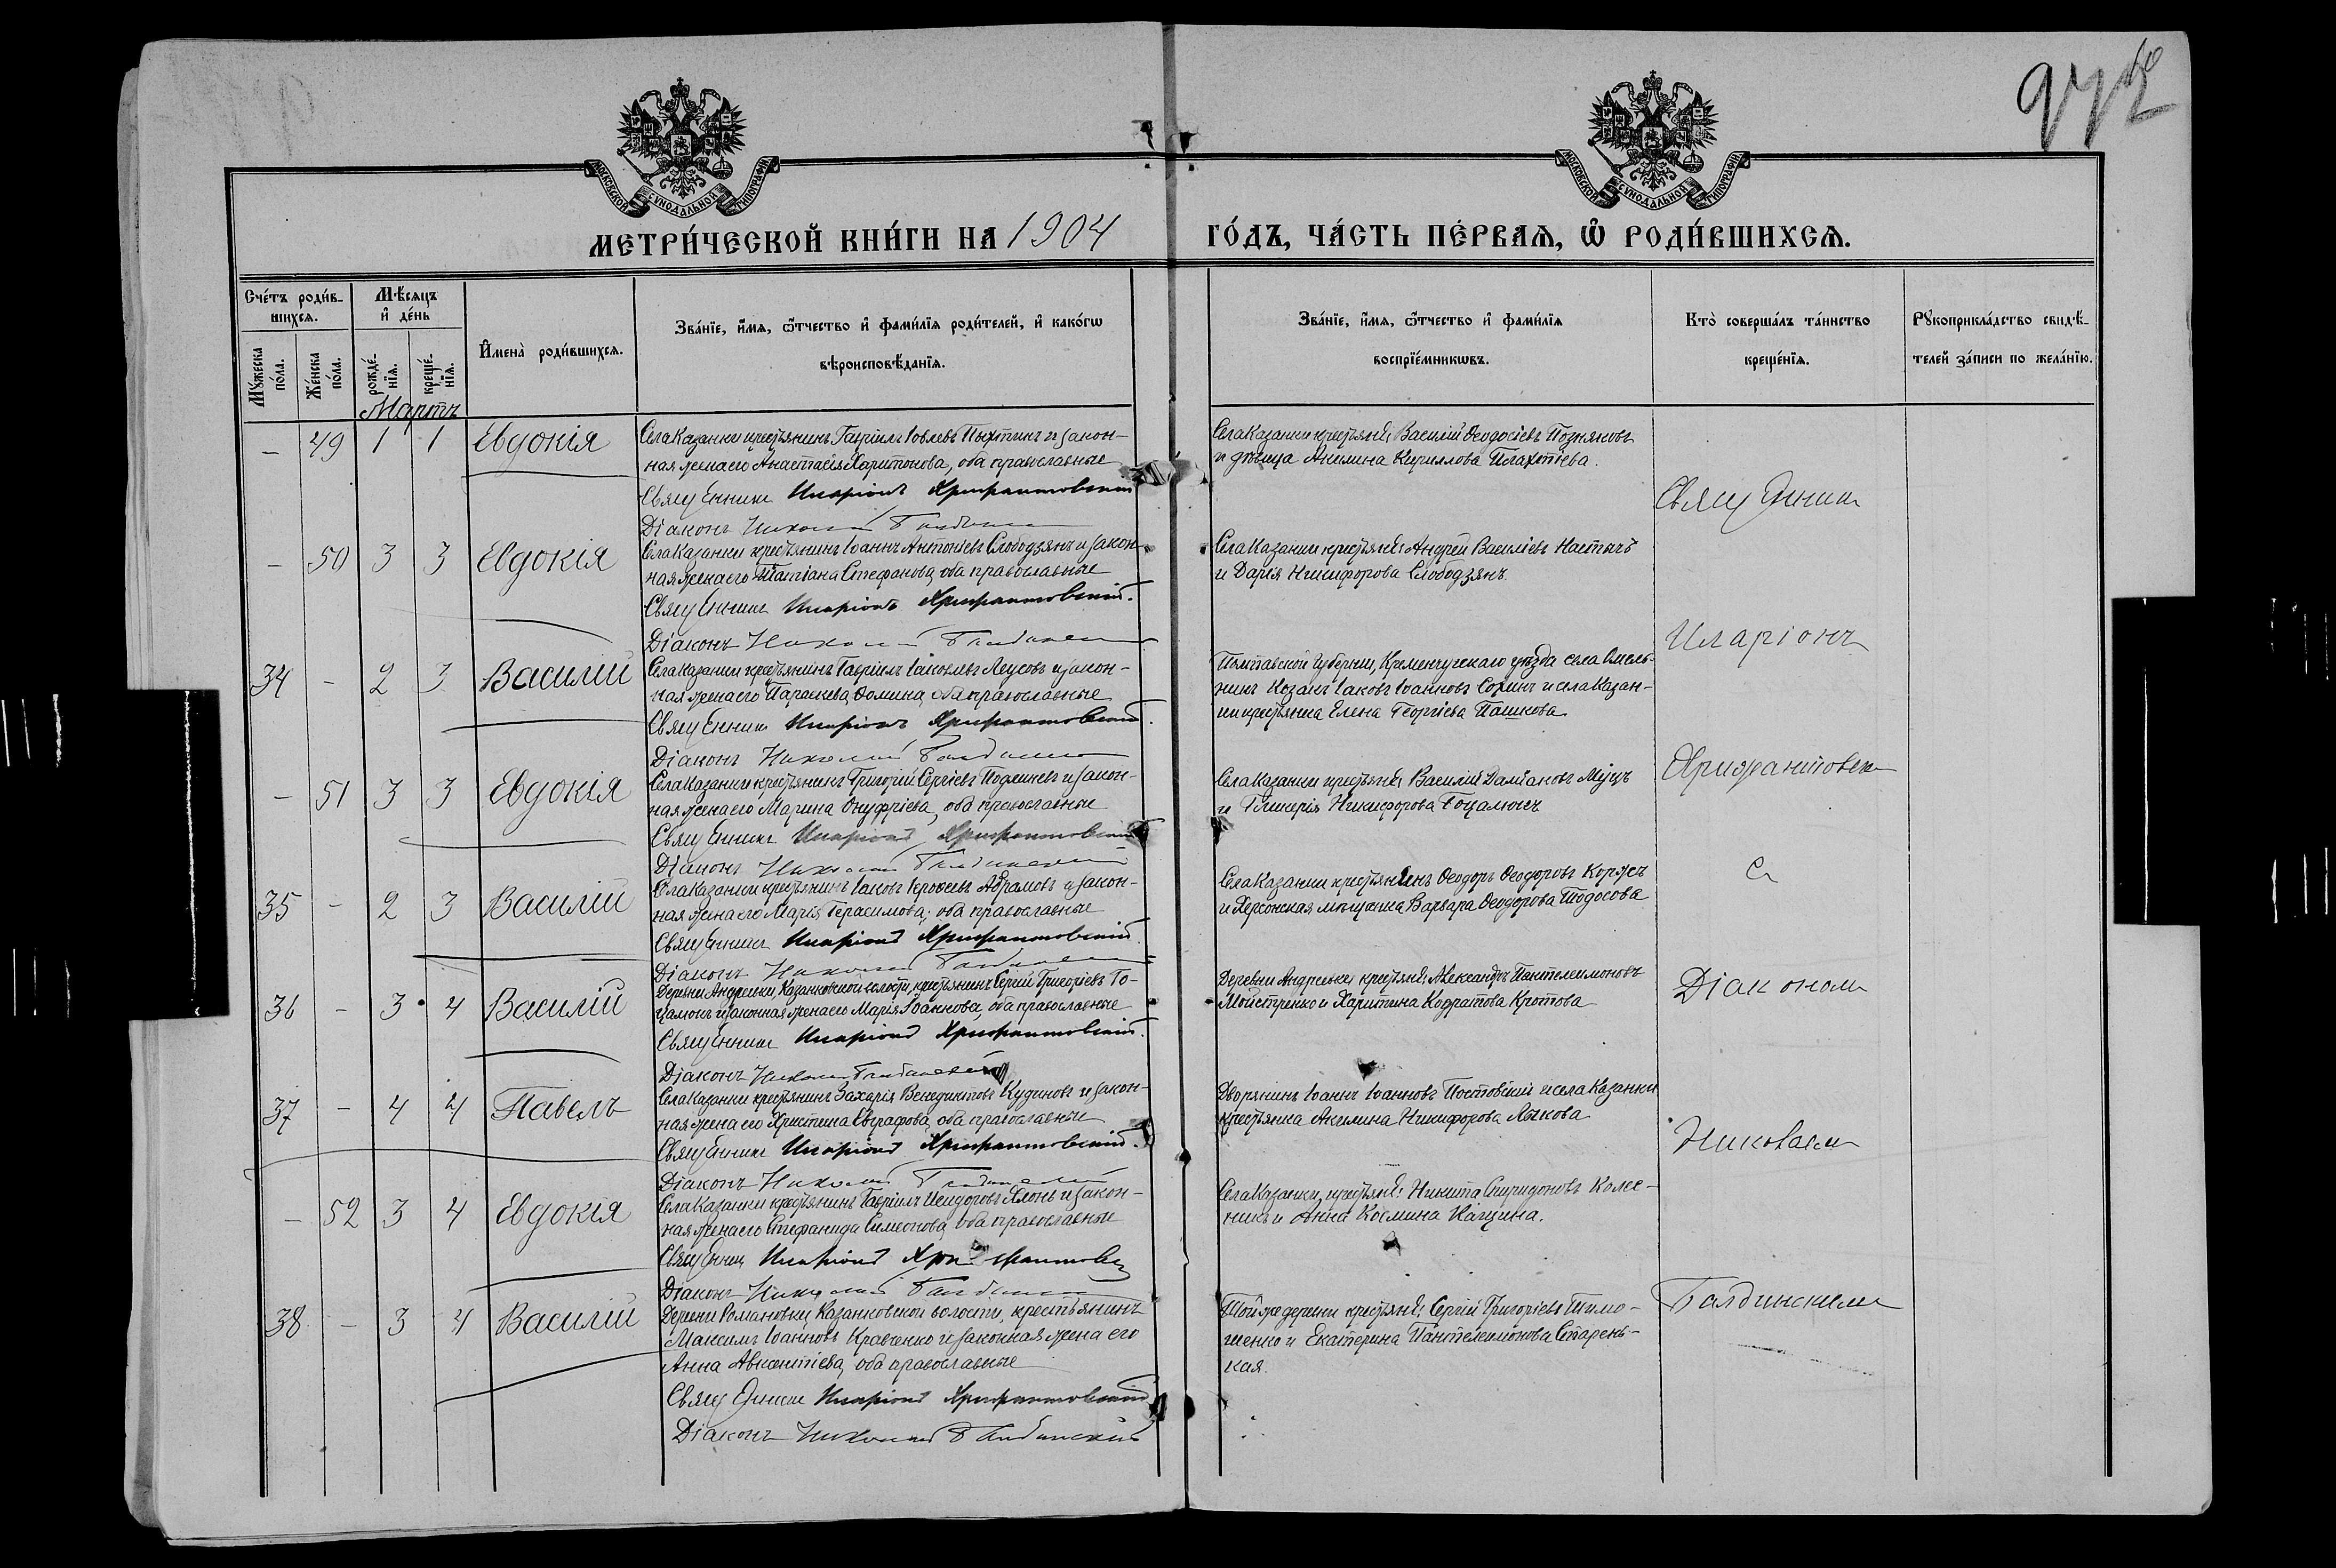 972
МОСКОВСКОЙ СѴНОДАЛЬНОЙ ТИПОГРАФІИ
МОСКОВСКОЙ СѴНОДАЛЬНОЙ ТИПОГРАФІИ
МЕТРИ́ЧЕСКОЙ КНИ́ГИ НА 1904
ГО́ДЪ, ЧА́СТЬ ПЕ́РВАѦ, Ѡ҆ РОДИ́ВШИХСѦ.
Сче́тъ роди́в-
шихсѧ.
Мꙋ́жеска по́ла.
Же́нска по́ла.
Мѣ́сѧцъ
и҆ де́нь
рожде́-
нїѧ.
креще́-
нїѧ.
И҆мена̀ роди́вшихсѧ.
Зва́нїе, и҆́мѧ, ѻ҆́тчество и҆ фами́лїѧ роди́телей, и҆ како́гѡ
вѣроисповѣ́данїѧ.
Зва́нїе, и҆́мѧ, ѻ҆́тчество и҆ фами́лїѧ
воспрїе́мникѡвъ.
Кто̀ соверша́лъ та́инство
креще́нїѧ.
Рꙋкоприкла́дство свидѣ́-
телей за́писи по жела́нїю.
Мартъ
– 49 1 1 Евдокія
Села Казанки крестьянинъ Гавріилъ Іовлевъ Пыхтинъ и закон-
ная жена его Анастасія Харитонова, оба православные
Священникъ Иларіонъ Хрисрантовскій
Діаконъ Николай Балдинскій
Села Казанки крестьяне: Василій Ѳеодосіевъ Позняковъ
и дѣвица Акилина Кириллова Плахтіева.
– 50 3 3 Евдокія
Села Казанки крестьянинъ Іоаннъ Антоніевъ Слободзянъ и закон-
ная жена его Татіана Стефанова, оба православные
Священникъ Иларіонъ Хрисрантовскій.
Діаконъ Николай Балдинскій
Села Казанки крестьяне: Андрей Василіевъ Настычъ
и Дарія Никифорова Слободзянъ.
34 – 2 3 Василій
Села Казанки крестьянинъ Гавріилъ Іаковлевъ Леусовъ и закон-
ная жена его Параскева Ѳомина, оба православные
Священникъ Иларіонъ Хрисрантовскій.
Діаконъ Николай Балдинскій
Полтавской губерніи, Кременчугскаго уѣзда села Омель-
никъ козакъ Іаковъ Іоанновъ Соринъ и села Казан-
ки крестьянка Елена Георгіева Пашкова
– 51 3 3 Евдокія
Села Казанки крестьянинъ Григорій Сергіевъ и закон-
ная жена его Марина Онуфріева, оба православные
Священникъ Иларіонъ Хрисрантовскій
Діаконъ Николай Балдинскій
Села Казанки крестьяне: Василій Даміановъ Муцъ
и Гликерія Никифорова Гоцалюкъ
35 – 2 3 Василій
Села Казанки крестьянинъ Іаковъ Абрамовъ и закон-
ная жена его Марія Герасимова, оба православные
Священникъ Иларіонъ Хрисрантовскій.
Діаконъ Николай Балдинскій
Села Казанки крестьянинъ Ѳеодоръ Ѳеодоровъ Коржъ
и Херсонская мѣщанка Варвара Ѳеодорова Тодосова
36 – 3 4 Василій
Деревни Андреевки, Казанковской волости, крестьянинъ Сергій Григоріевъ Го-
цалюкъ и законная жена его Марія Іоаннова, оба православные
Священникъ Иларіонъ Хрисрантовскій.
Діаконъ Николай Балдинскій
Деревни Андреевки крестьяне: Александръ Пантелеимоновъ
Мойстренко и Харитина Кодратова Кротова
37 – 4 4 Павелъ
Села Казанки крестьянинъ Захарія Венедиктовъ Кудиновъ и закон-
ная жена его Христина Евграфова, оба православные
Священникъ Иларіонъ Хрисрантовскій.
Діаконъ Николай Балдинскій
Дворянинъ Іоаннъ Іоанновъ Постовскій и села Казанки
крестьянка Акилина Никифорова Лыкова
– 52 3 4 Евдокія
Села Казанки крестьянинъ Гавріилъ Исидоровъ и закон-
ная жена его Стефанида Симеонова, оба православные
Священникъ Иларіонъ
Діаконъ Николай Балдинскій
Села Казанки, крестьяне: Никита Спиридоновъ Колес-
никъ и Анна Космина Кащина.
38 – 3 4 Василій
Деревни Романовки Казанковской волости, крестьянинъ
Максимъ Іоанновъ Кравченко и законная жена его
Анна Авксентіева, оба православные
Священникъ Иларіонъ Хрисрантовскій
Діаконъ Николай Балдинскій
Той же деревни крестьяне: Сергій Григоріевъ Тимо-
шенко и Екатерина Пантелеимонова Старень-
кая.
Священникъ
Иларіонъ
Хрисанфовск
съ
Діакономъ
Николаемъ
Балдинскимъ